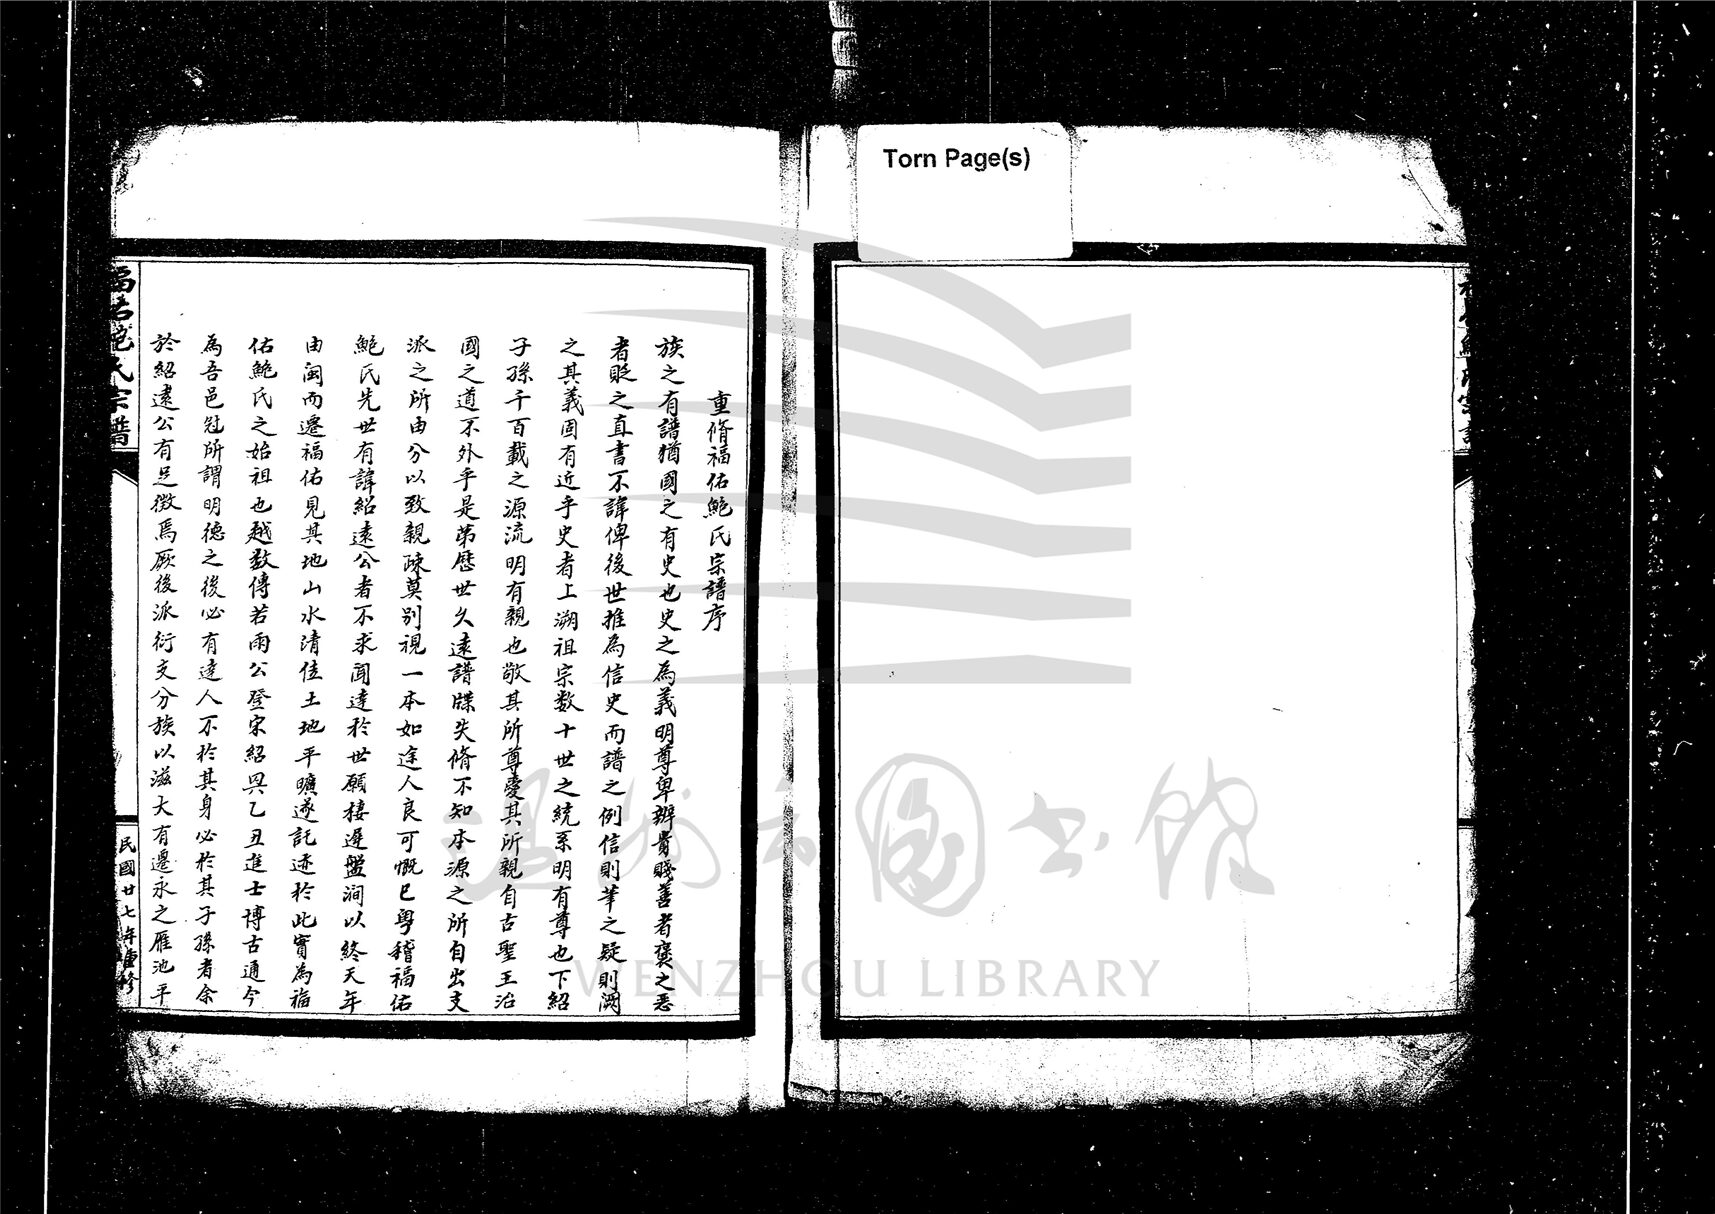 Torn Page(s)
重脩福佑鮑氏宗譜序
族之有譜猶國之有史也史之為義明尊卑辨貴賤善者褒之惡
者貶之直書不諱俾後世推為信史而譜之例信則筆之疑則闕
之其義固有近乎史者上溯祖宗数十世之統系明有尊也下紹
子孫千百載之源流明有親也敬其所尊愛其所親自古聖王治
國之道不外乎是苐歷世久遠譜牒失脩不知本源之所自出支
派之所由分以致親疎莫别視一本如途人良可慨已粤稽福佑
鮑氏先世有諱紹遠公者不求聞達於世願棲遲盤澗以終天年
由閩而遷福佑見其地山水清佳土地平曠遂託迹於此實為福
佑鮑氏之始祖也越数傳若雨公登宋紹興乙丑進士博古通今
為吾邑冠所謂明德之後必有達人不於其身必於其子孫者余
於紹遠公有足徴焉厥後派衍支分族以滋大有遷永之雁池平
福佑鮑氏宗譜
民國廿七年重修
温州市圖書館
WENZHOU LIBRARY